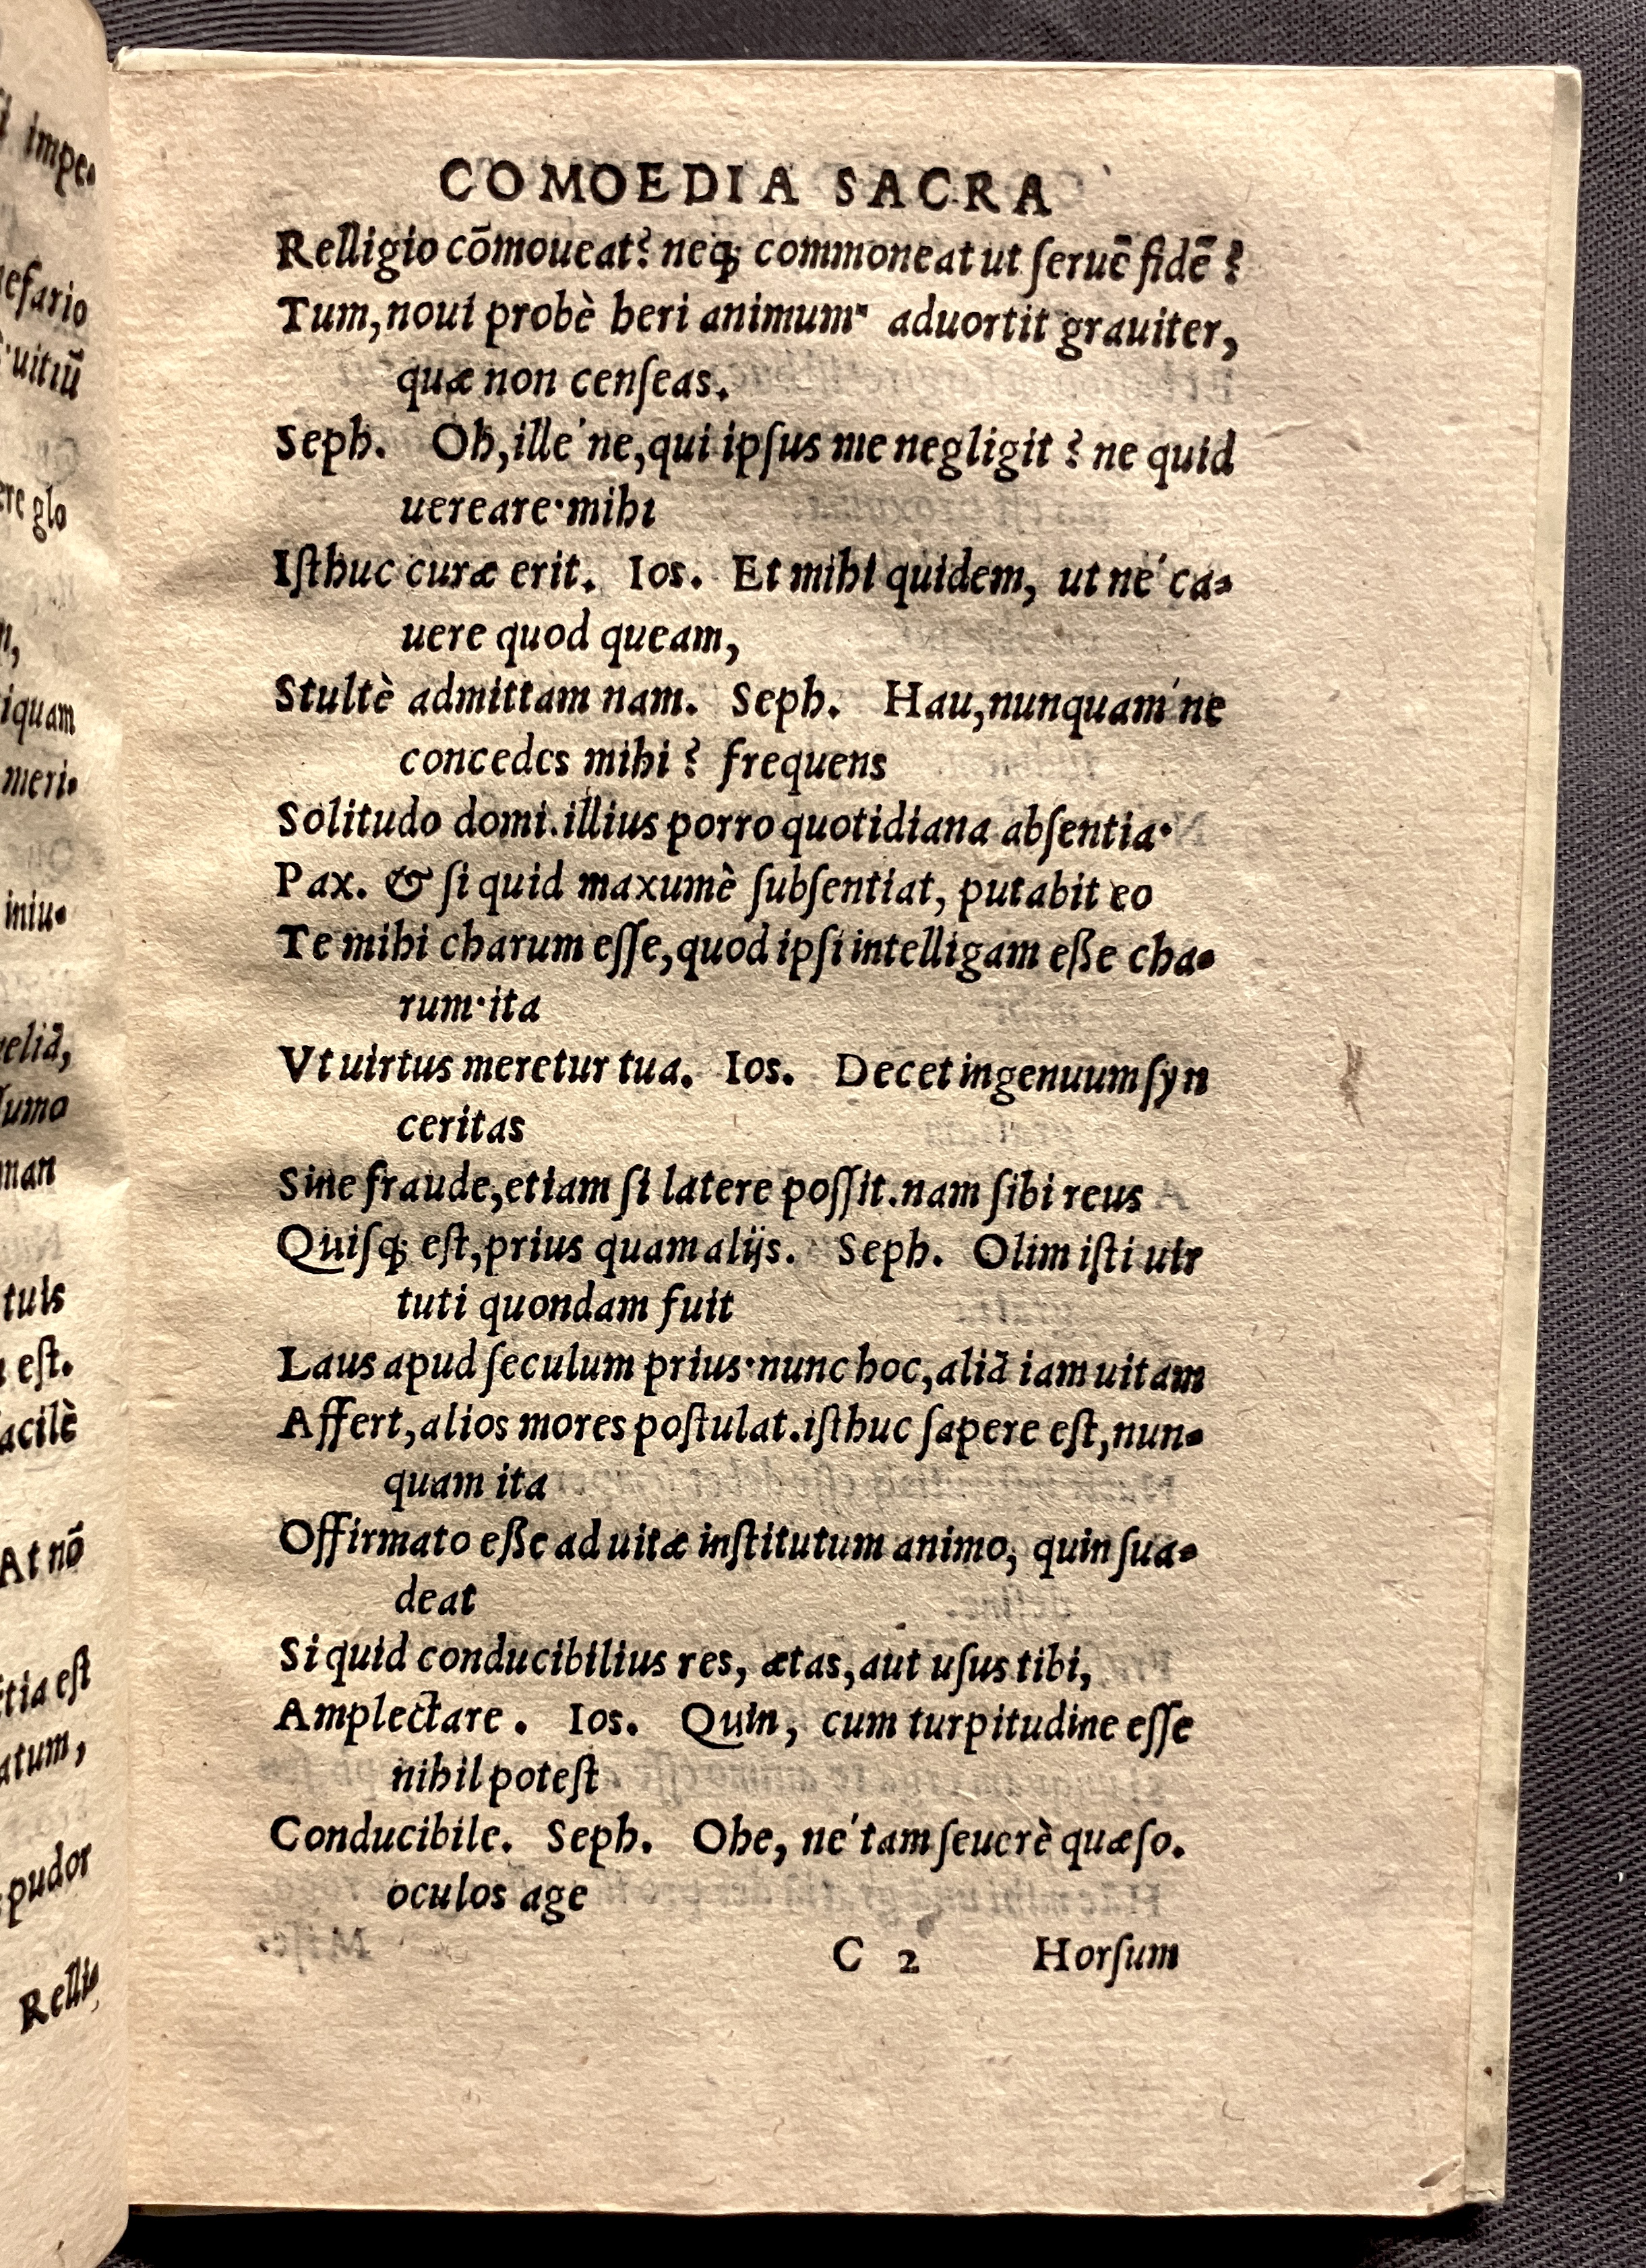 COMOEDIA SACRA
Relligio cōmoueat? neq; commoneat ut seruē fidē?
Tum, noui probè heri animum· aduortit grauiter,
quæ non censeas.
Seph. Oh, ille'ne, qui ipsus me negligit? ne quid
uereare·mihi
Isthuc curæ erit. Ios. Et mihi quidem, ut ne' ca-
uere quod queam,
Stultè admittam nam. Seph. Hau, nunquam'ne
concedes mihi? frequens
Solitudo domi. illius porro quotidiana absentia·
Pax. & si quid maxumè subsentiat, putabit eo
Te mihi charum esse, quod ipsi intelligam eße cha-
rum·ita
Vt uirtus meretur tua. Ios. Decet ingenuum syn
ceritas
Sine fraude, etiam si latere possit. nam sibi reus
Quisq; est, prius quam alijs. Seph. Olim isti uir
tuti quondam fuit
Laus apud seculum prius·nunc hoc, aliā iam uitam
Affert, alios mores postulat. isthuc sapere est, nun-
quam ita
Offirmato eße ad uitæ institutum animo, quin sua-
deat
Si quid conducibilius res, ætas, aut usus tibi,
Amplectare. Ios. Quin, cum turpitudine esse
nihil potest
Conducibile. Seph. Ohe, ne' tam seuerè quæso.
oculos age
C 2 Horsum
impe-
efario
uitiū
ere glo
iquam
meri-
iniu-
eliā,
sumo
nan
tuis
est.
acilè
At nō
tia est
atum,
pudor
Relli-